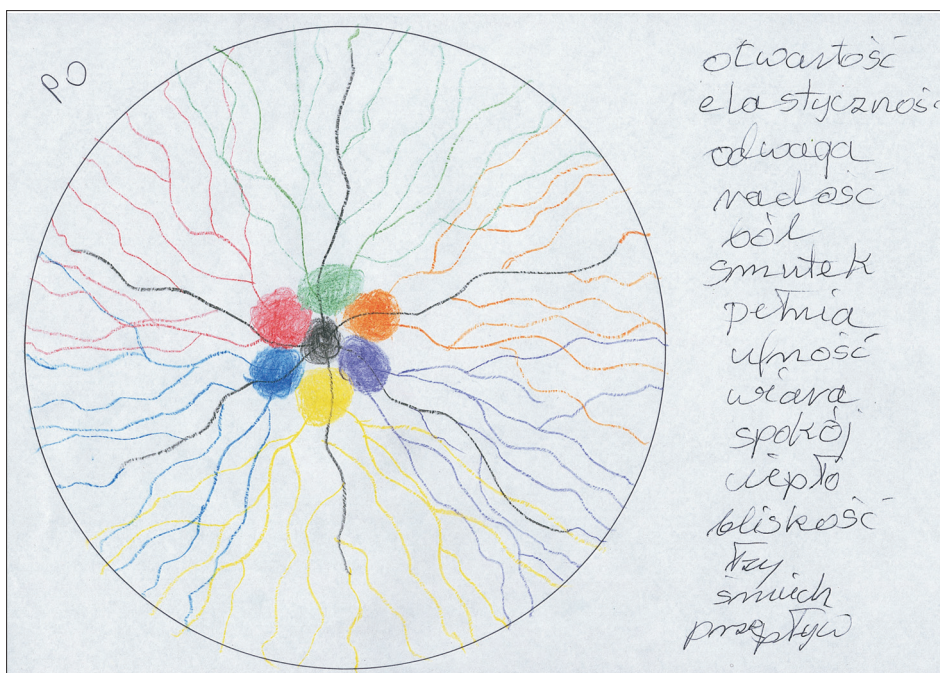 PO
otwartość
elastyczność
odwaga
radość
ból
smutek
pełnia
ufność
wiara
spokój
ciepło
bliskość
łzy
śmiech
przepływ